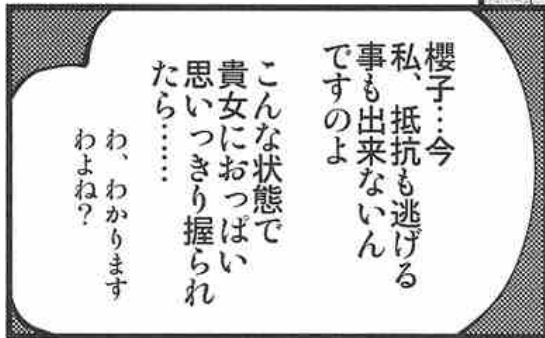 櫻子…今
私、抵抗も逃げる
事も出来ないん
ですのよ
こんな状態で
貴女におっぱい
思いっきり握られ
たら……
わ、わかります
わよね?